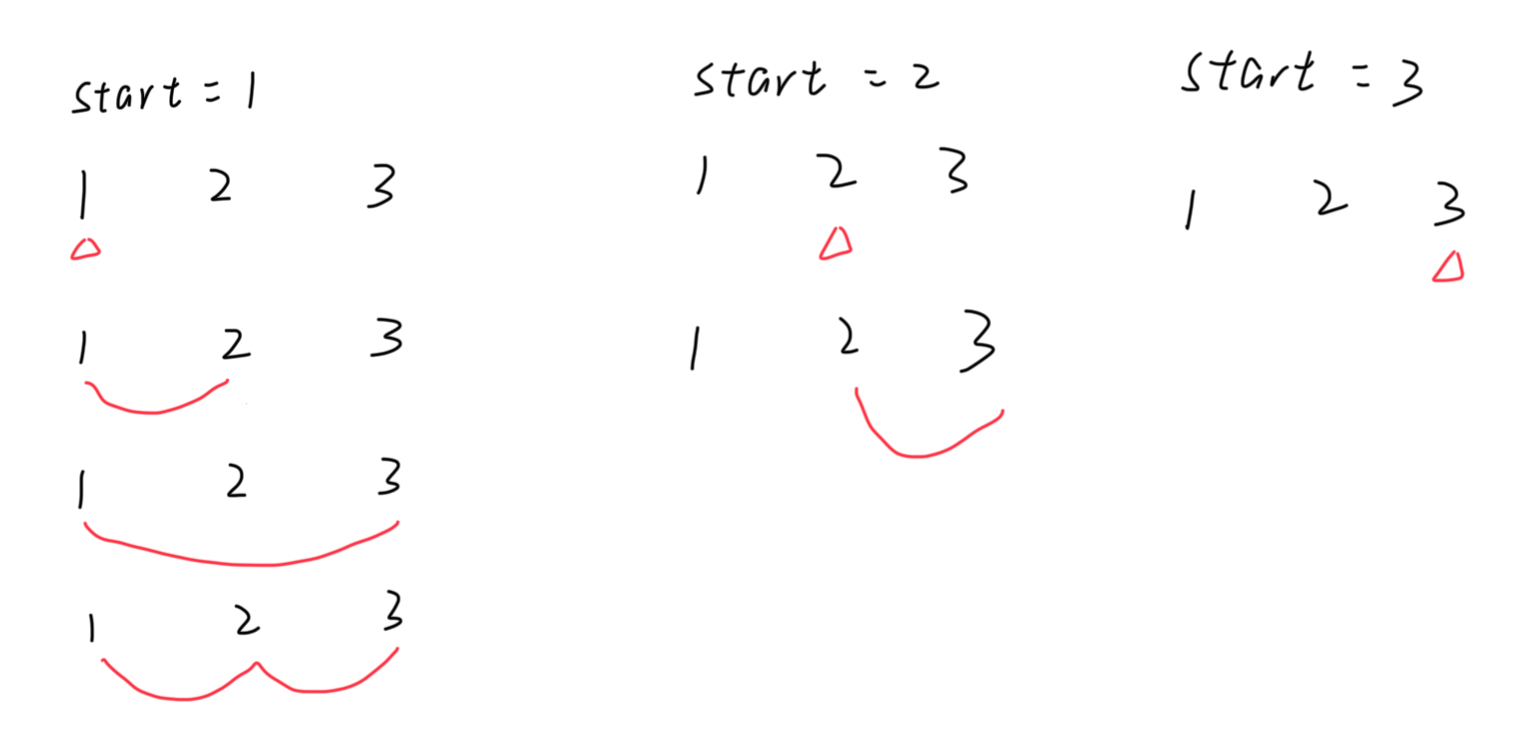 start = 1
1 2 3
1 2 3
1 2 3
1 2 3
start = 2
1 2 3
1 2 3
start = 3
1 2 3